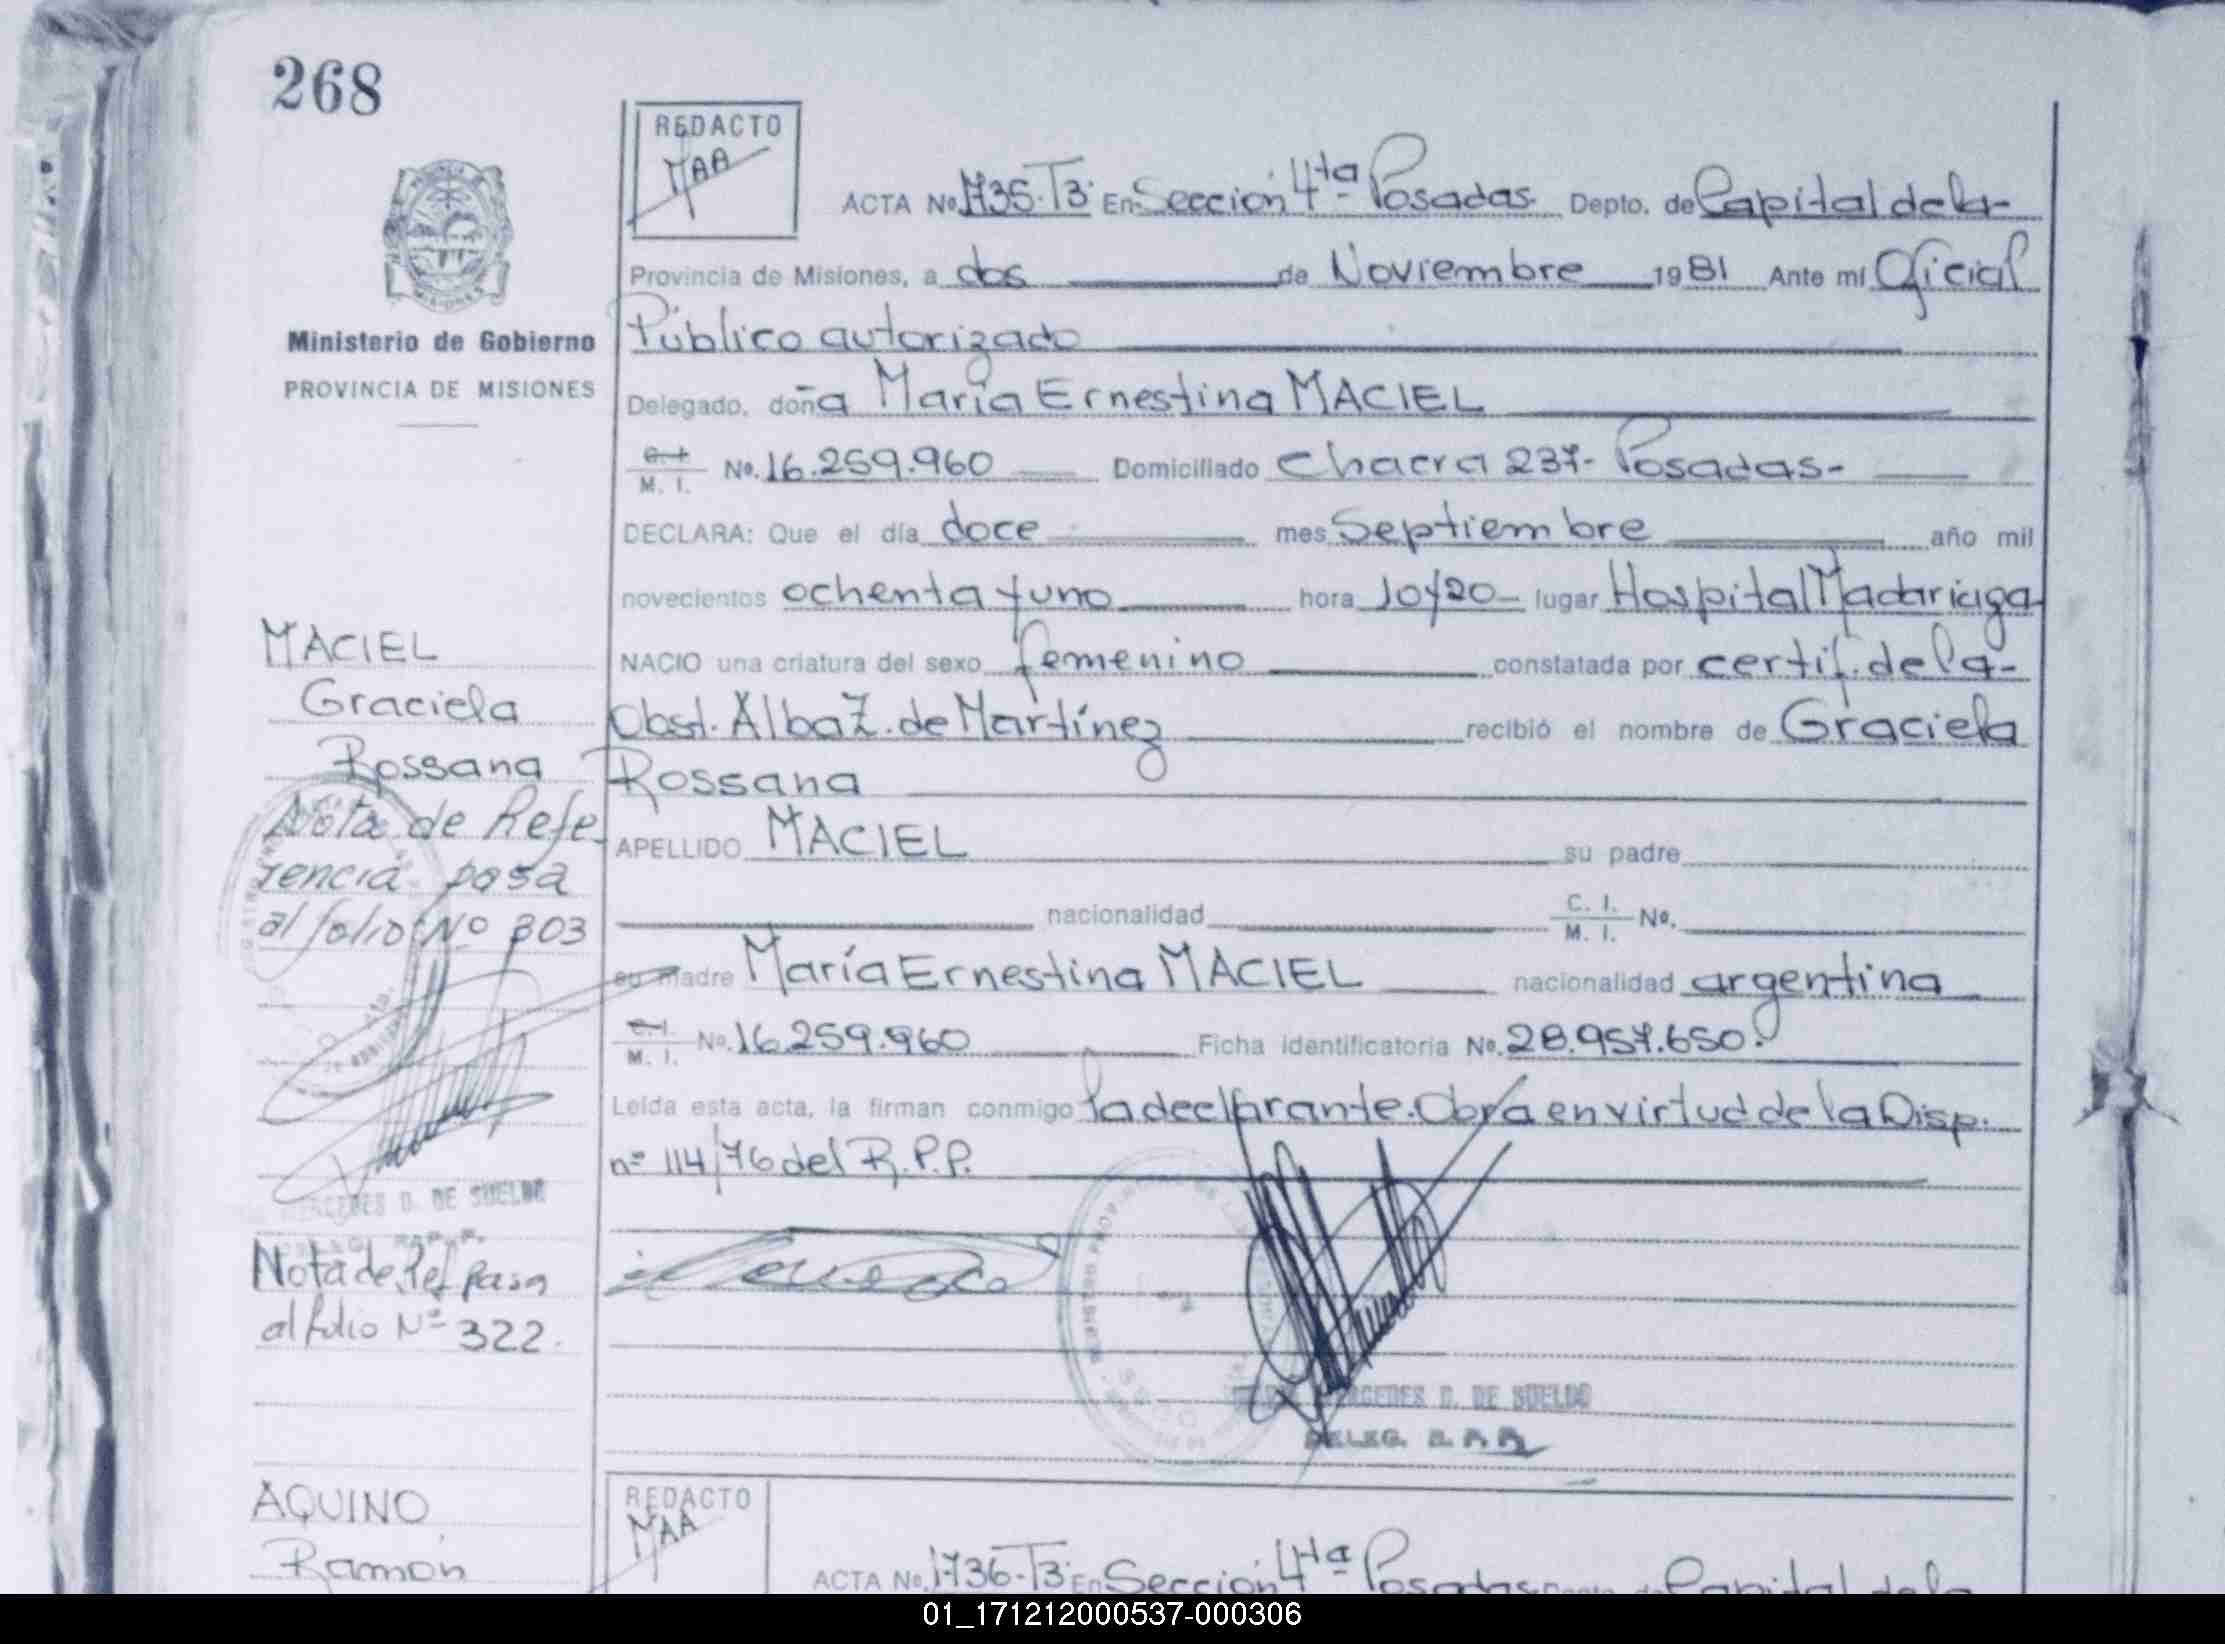 268
REDACTO
MAA
ACTA No. 1735-T3- En Sección 4ta Posadas- Depto. de Capital de la-
Provincia de Misiones, a dos de Noviembre 1981 Ante mí Oficial
Público autorizado
Ministerio de Gobierno
PROVINCIA DE MISIONES
MISIONES
Delegado, doña María Ernestina MACIEL
C. I.
M. I. No. 16.259.960 Domiciliado Chacra 237- Posadas-
DECLARA: Que el día doce mes Septiembre año mil
novecientos ochenta y uno hora 10y20- lugar Hospital Madariaga
NACIO una criatura del sexo femenino constatada por certif. de la-
Obst. Alba Z. de Martínez recibió el nombre de Graciela
Rossana
APELLIDO MACIEL su padre
nacionalidad C. I.
M. I. No.
su madre María Ernestina MACIEL nacionalidad argentina
C. I.
M. I. No. 16.259.960 Ficha identificatoria No. 28.957.650.
Leída esta acta, la firman conmigo la declarante. Obra en virtud de la Disp.
nº 114/76 del R.P.P.
MERCEDES D. DE SUELDO
DELEG. R.P.P.
MACIEL
Graciela
Rossana
Nota de Refe-
rencia pasa
al folio Nº 303
MERCEDES D. DE SUELDO
Nota de Ref pasa
al folio Nº 322.
AQUINO
Ramón
REDACTO
MAA
ACTA No. 1736-T3- En Sección 4ta Posadas Capital de la
01_171212000537-000306